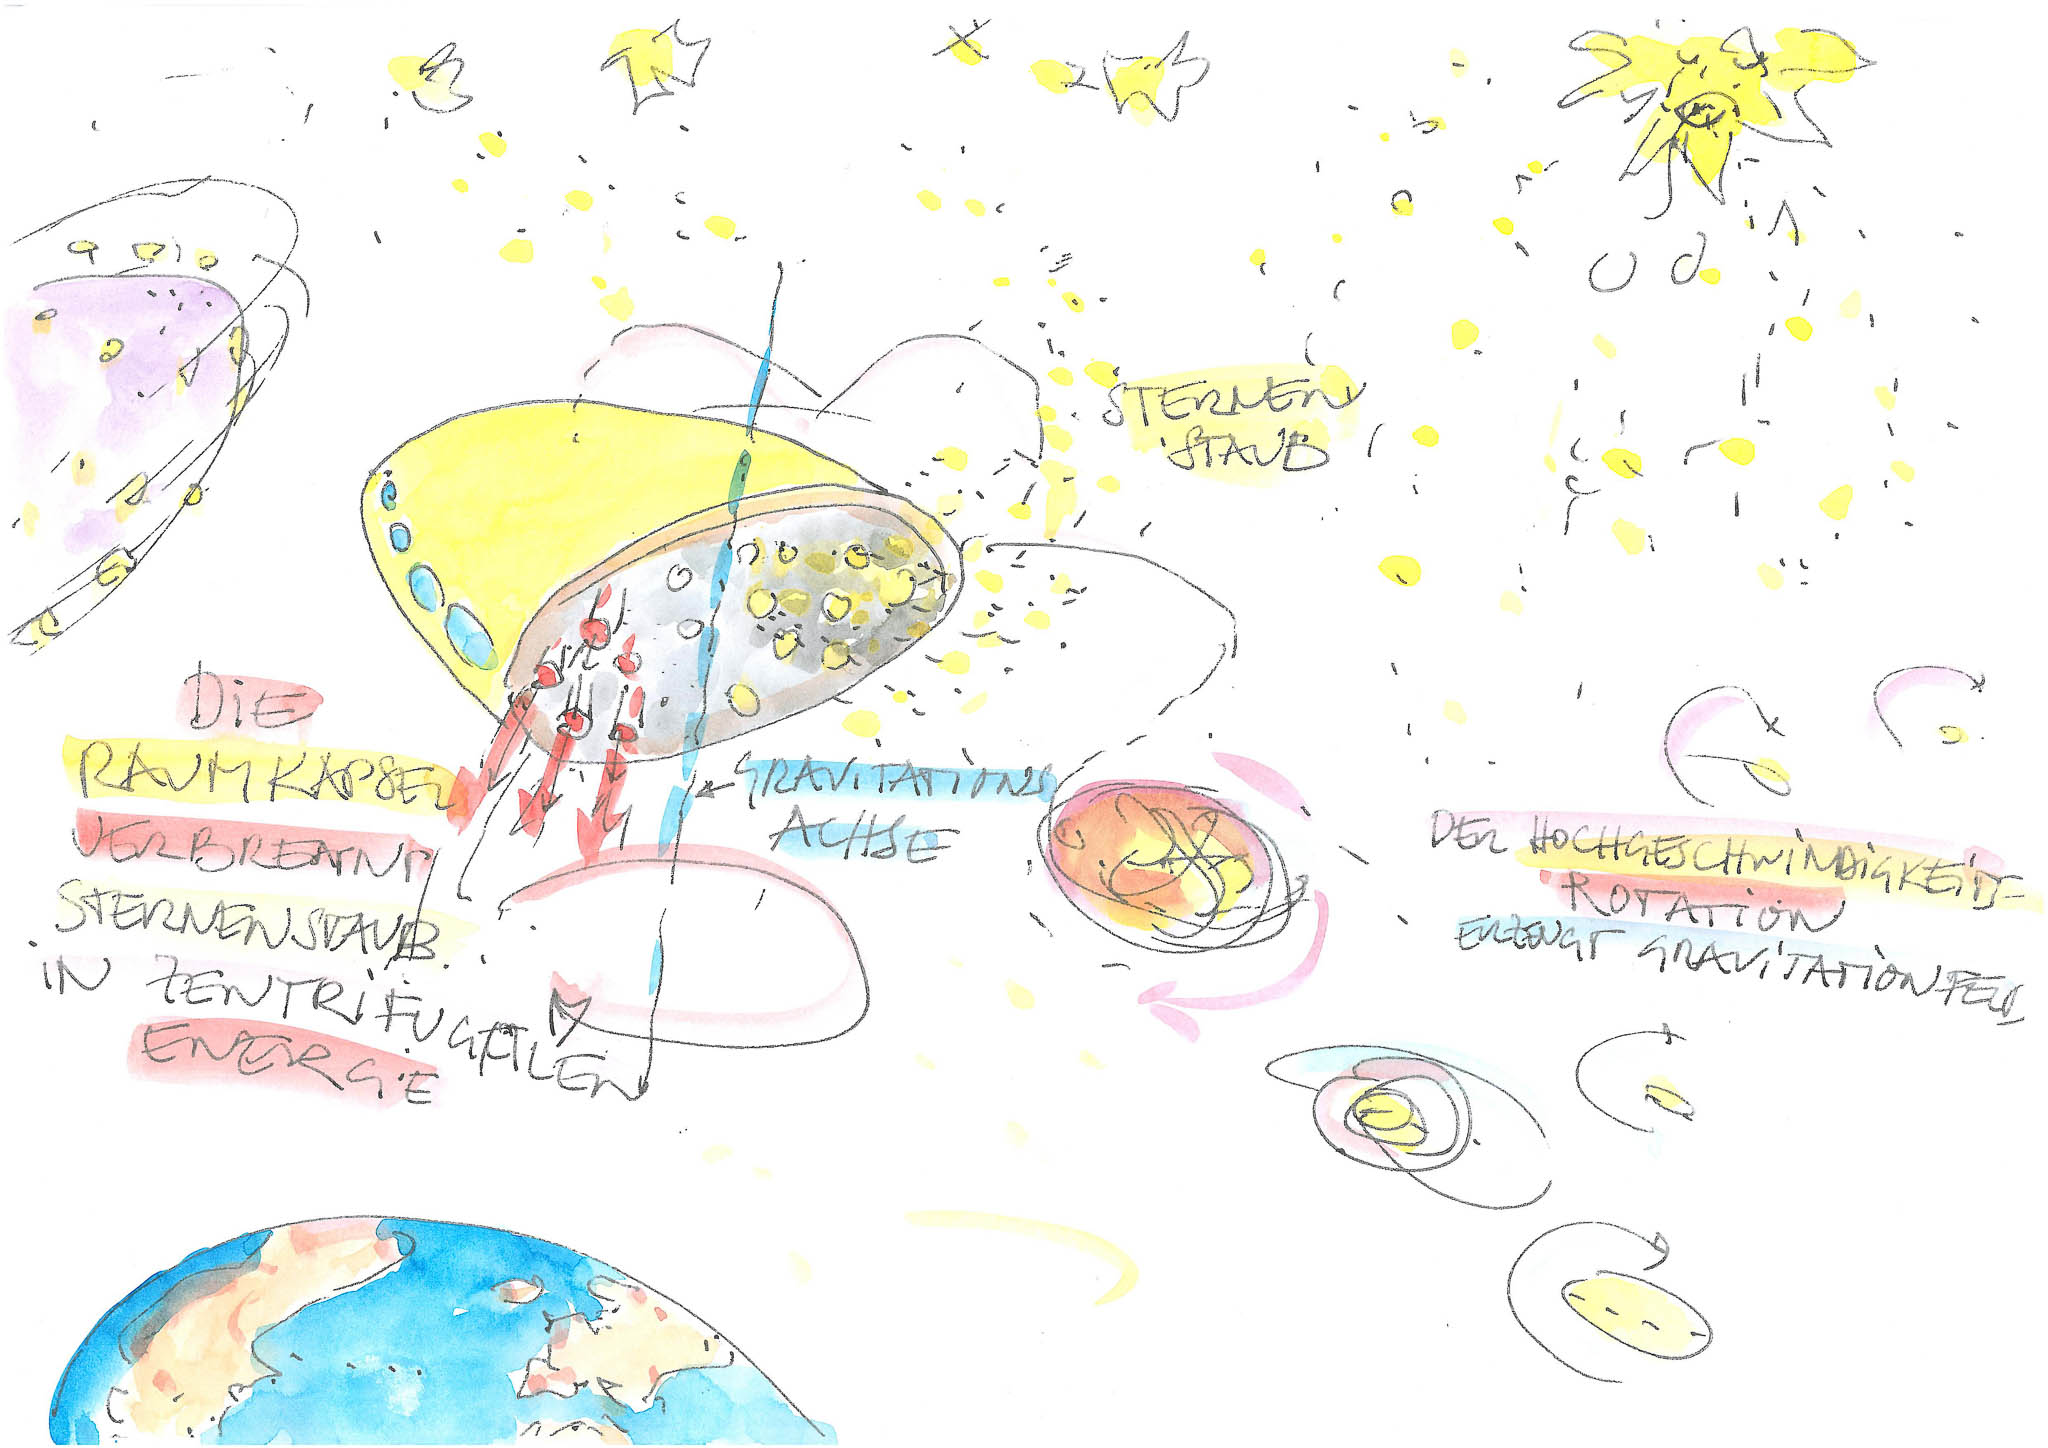 STERNEN
STAUB
DiE
RAUMKAPSEL
VERBRENNT
STERNENSTAUB
iN ZENTRiFUGALEN
ENERGiE
GRAViTATiONS
ACHSE
DER HOCHGESCHWiNDiGKEiTS-
ROTATiON
ERZEUGT GRAViTATiONFELD